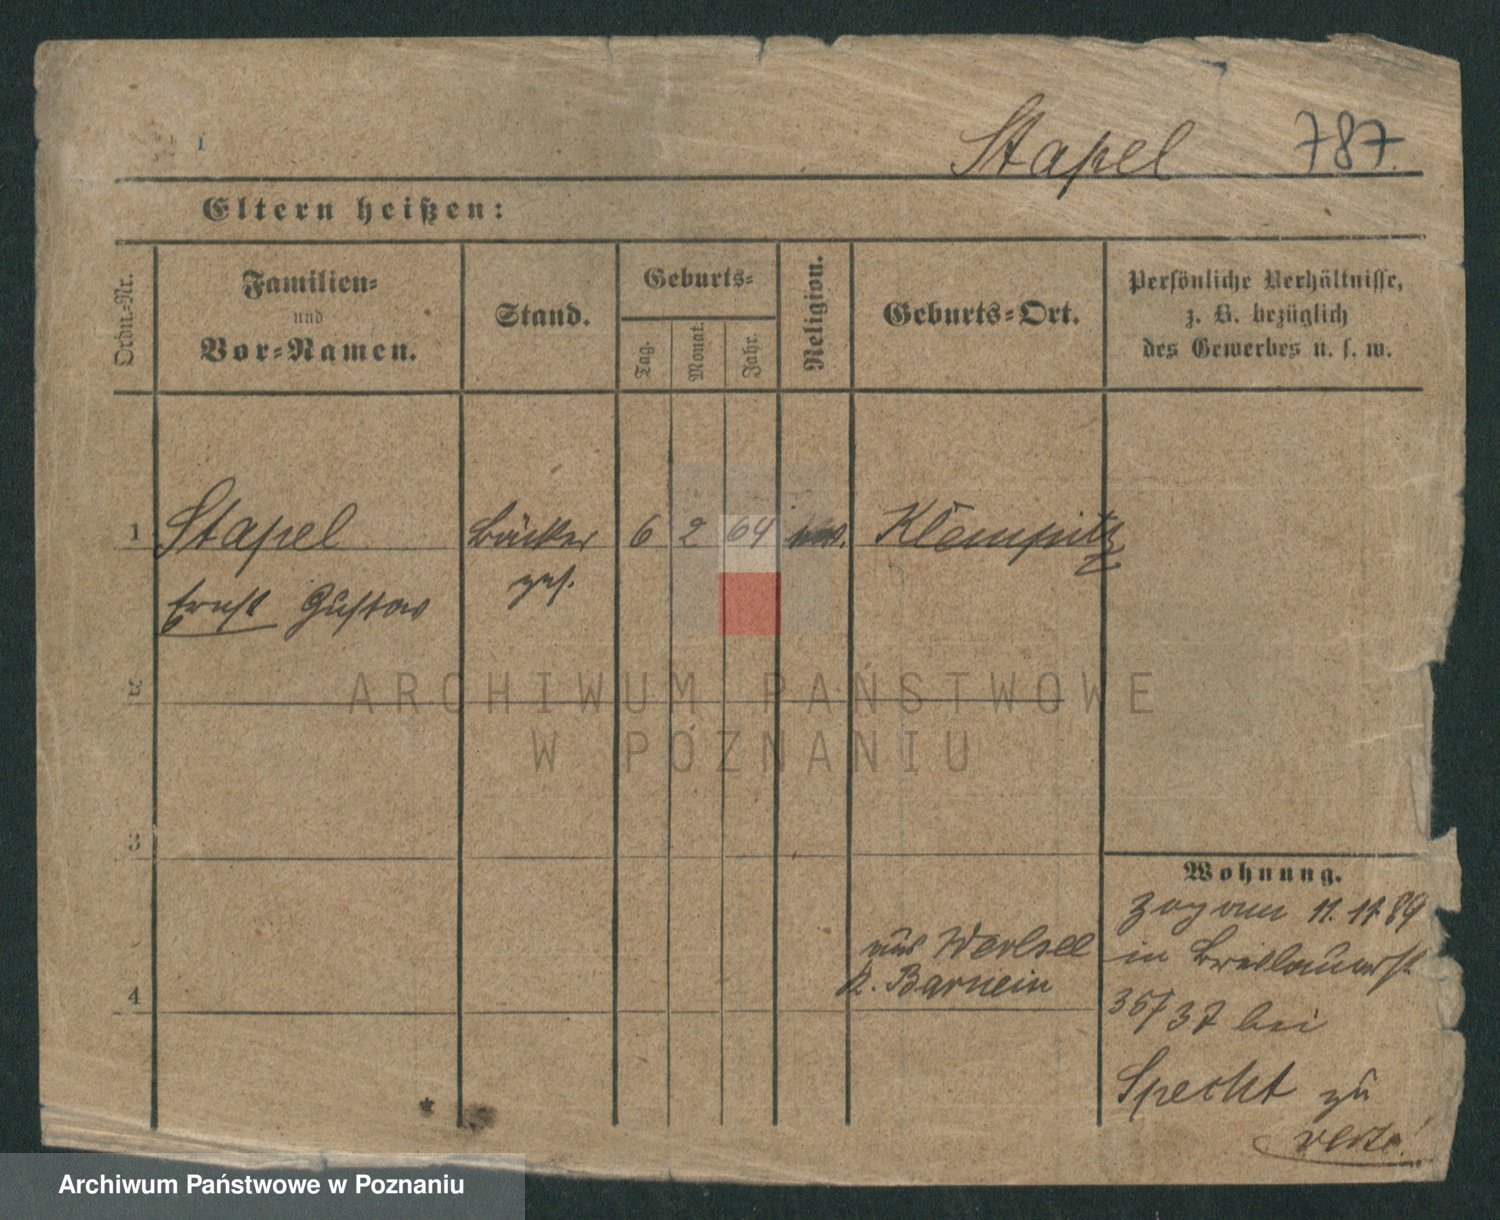 I
Stapel 787.
Eltern heißen:
Ordn.-Nr.
Familien-
und
Vor-Namen.
Stand.
Geburts-
Tag.
Monat.
Jahr.
Religion.
Geburts-Ort.
Persönliche Verhältnisse,
z. B. bezüglich
des Gewerbes u. s. w.
1 Stapel Bäcker 6 2 64 Klempitz
Ernst Gustav ges.
2
ARCHIWUM PAŃSTWOWE
W POZNANIU
3
Wohnung.
zog am 11.11 89
aus
in Breslauerst
4
35/37 bei
Specht zu
verte!
Archiwum Państwowe w Poznaniu